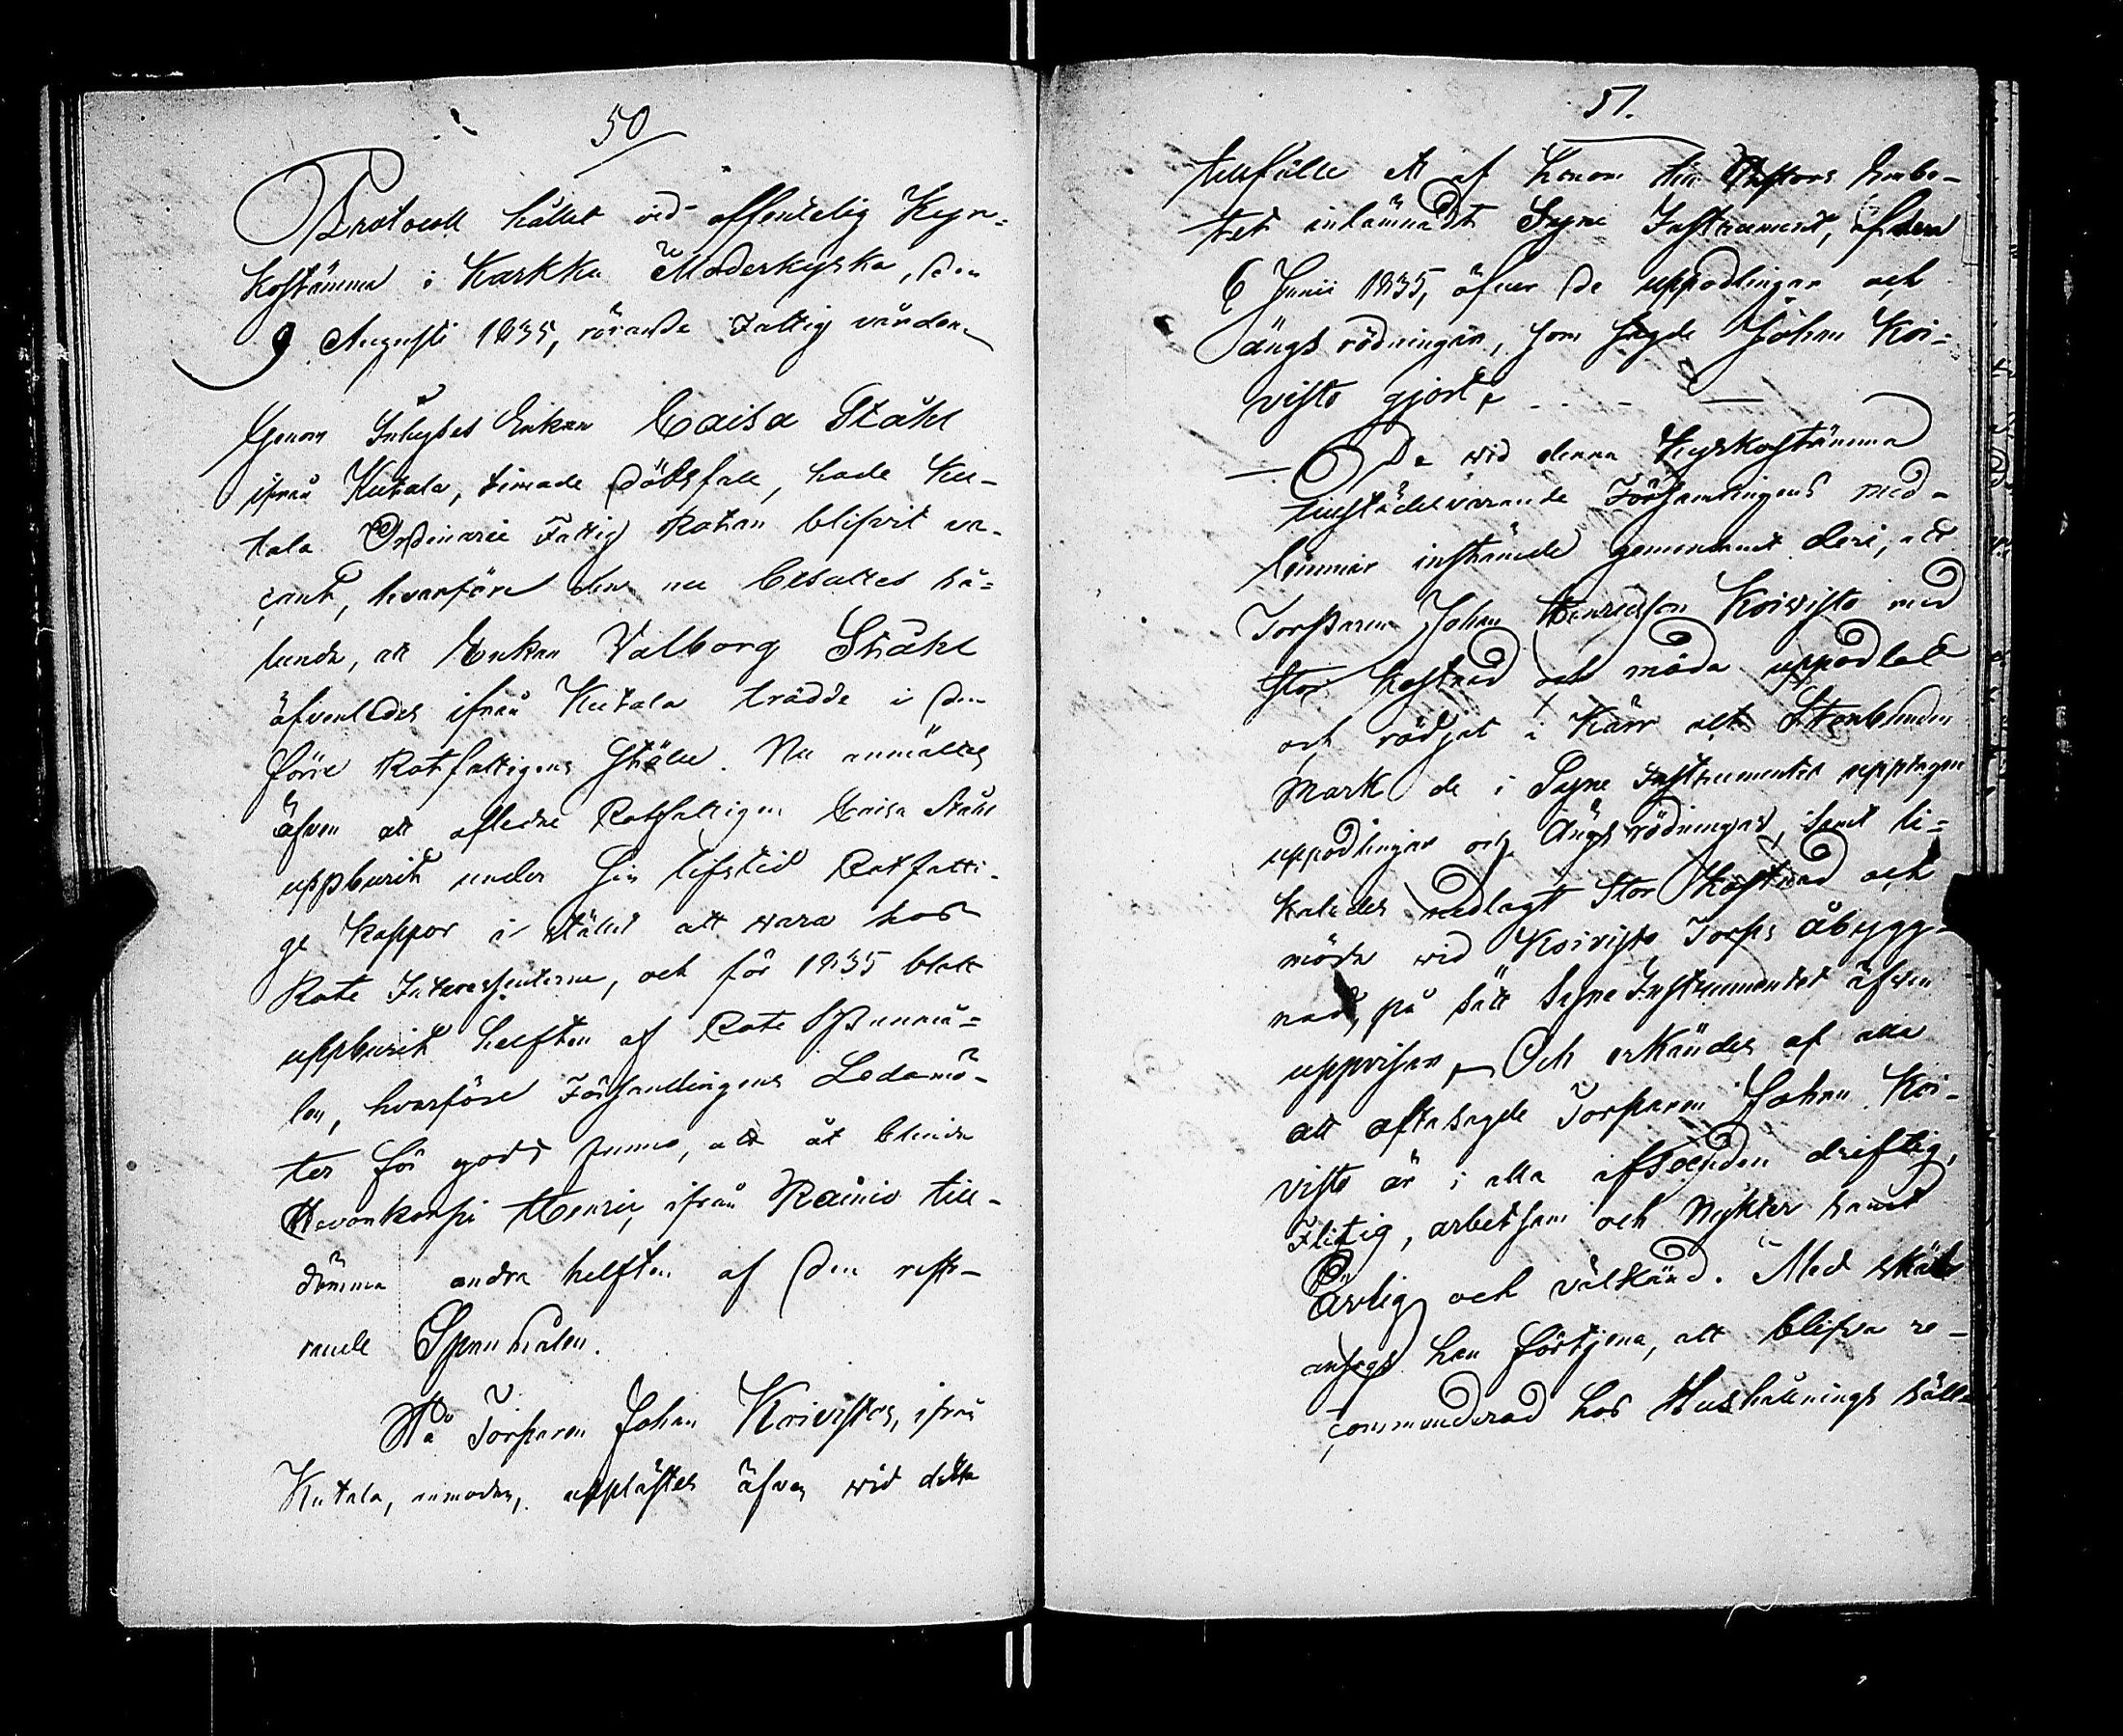 50
Protocoll hållet vid offentelig Kyr-
kostämma i Karkku Moderkyrka, den
9 Augusti 1835, rörande Fattig vården
Genom Inhyses Enkan Caisa Ståhl
ifrån Kutala, timade dödsfall, hade Ku-
tala Ordinarie Fattig Rotan blifvit va-
cant, hvarföre den nu besattes så-
lunda, att Enkan Valborg Ståhl
äfvenledes ifrån Kutala trädde i den
förre Rotfattigens ställe. Nu anmältes
äfven att aflidne Rotfattigen Caisa Ståhl
uppburit under sin lifstid Rotfatti-
ge kappor i stället att wara hos
Rote Interessenterne, och för 1835 blott
uppburit helften af Rote Spannmå-
len, hvarföre Församlingens Ledamö-
ter för godt funno, att åt blinda
Hevonkorpi Henric, ifrån Rainio till-
dömma andra helften af den reste-
rande Spanmålen.
På Torparen Johan Koivistos, ifrån
Kutala, anmodan, upplästes äfven wid detta
51.
tillfälle ett af honom till Pastors Embe-
tet inlämnadt Syne Instrument, af den
6 Junii 1835, öfwer de uppodlingar och
ängs rödningar, som sagde Johan Koi-
visto gjort.
De wid denna Kyrkostämma
tillstädesvarande Församlingens med-
lemmar instämde gemensamt deri, att
Torparen Johan Henricsson Koivisto med
stor kostnad och möda uppodlat
och rödjat i Kärr och Stenbunden
Mark de i Syne Instrumentet upptagne
uppodlingar och Ängsrödningar, samt li-
kaledes nedlagt stor kostnad och
möda wid Koivisto Torps åbygg-
nad, på sätt Syne Instrumentet äfwen
uppvisar. Och erkändes af alla
att oftasagde Torparen Johan Koi-
visto är i alla afseenden driftig,
Flitig, arbetsam och Nykter samt
Ärlig och välkänd. Med skäl
ansågs han förtjena, att blifva re-
commenderad hos Hushållnings Säll-